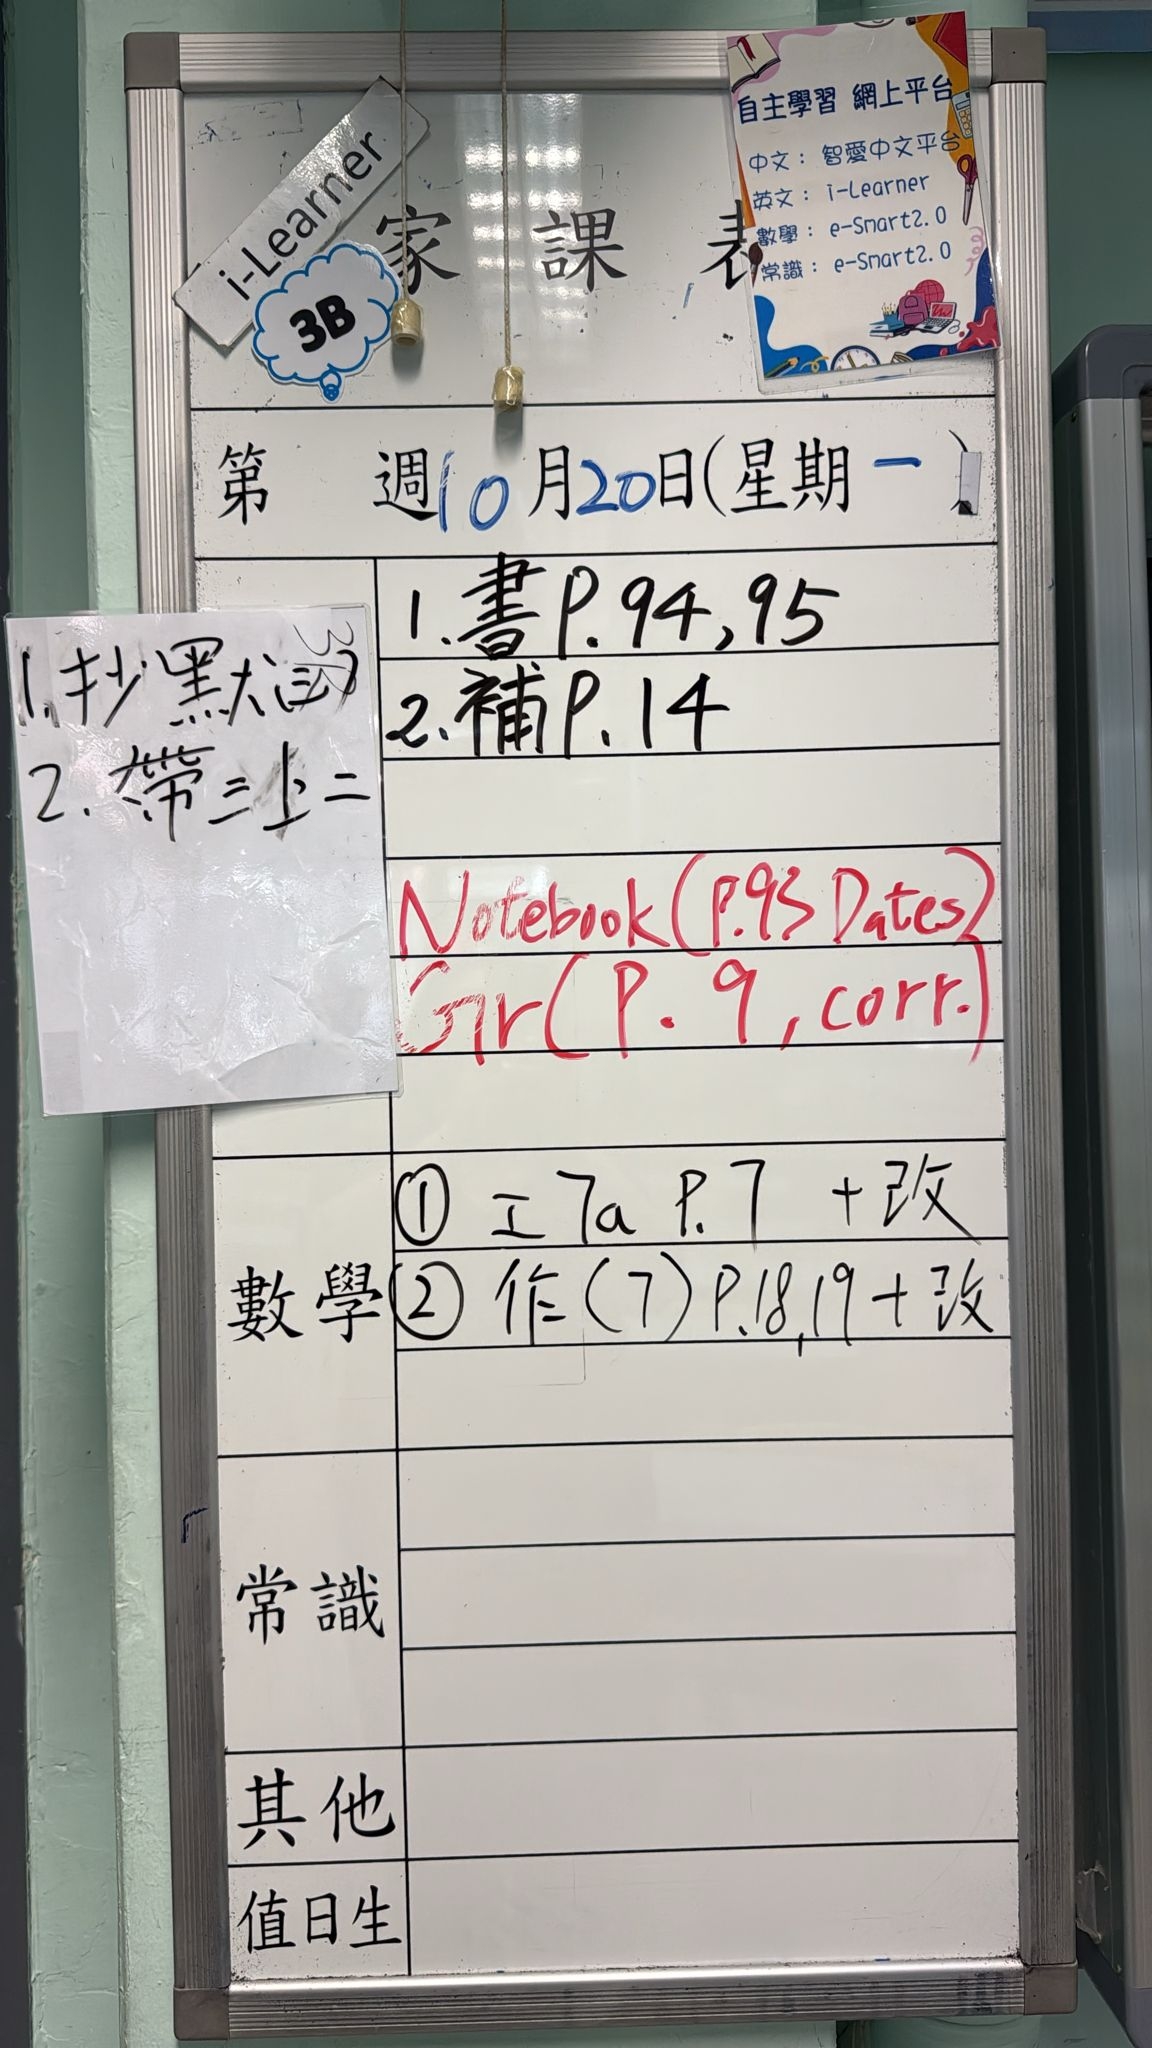 i-Learner
3B
家課表
自主學習 網上平台
中文： 智愛中文平台
英文： i-Learner
數學： e-Smart2.0
常識： e-Smart2.0
第 週 10月20日(星期一)
1. 書P.94,95
2. 補P.14
3B
1. 抄默詞
2. 帶三上二
Notebook(P.93 Dates)
Gr(P.9, corr.)
數學
① 工7a P.7 +改
② 作(7)P.18,19+改
常識
其他
值日生